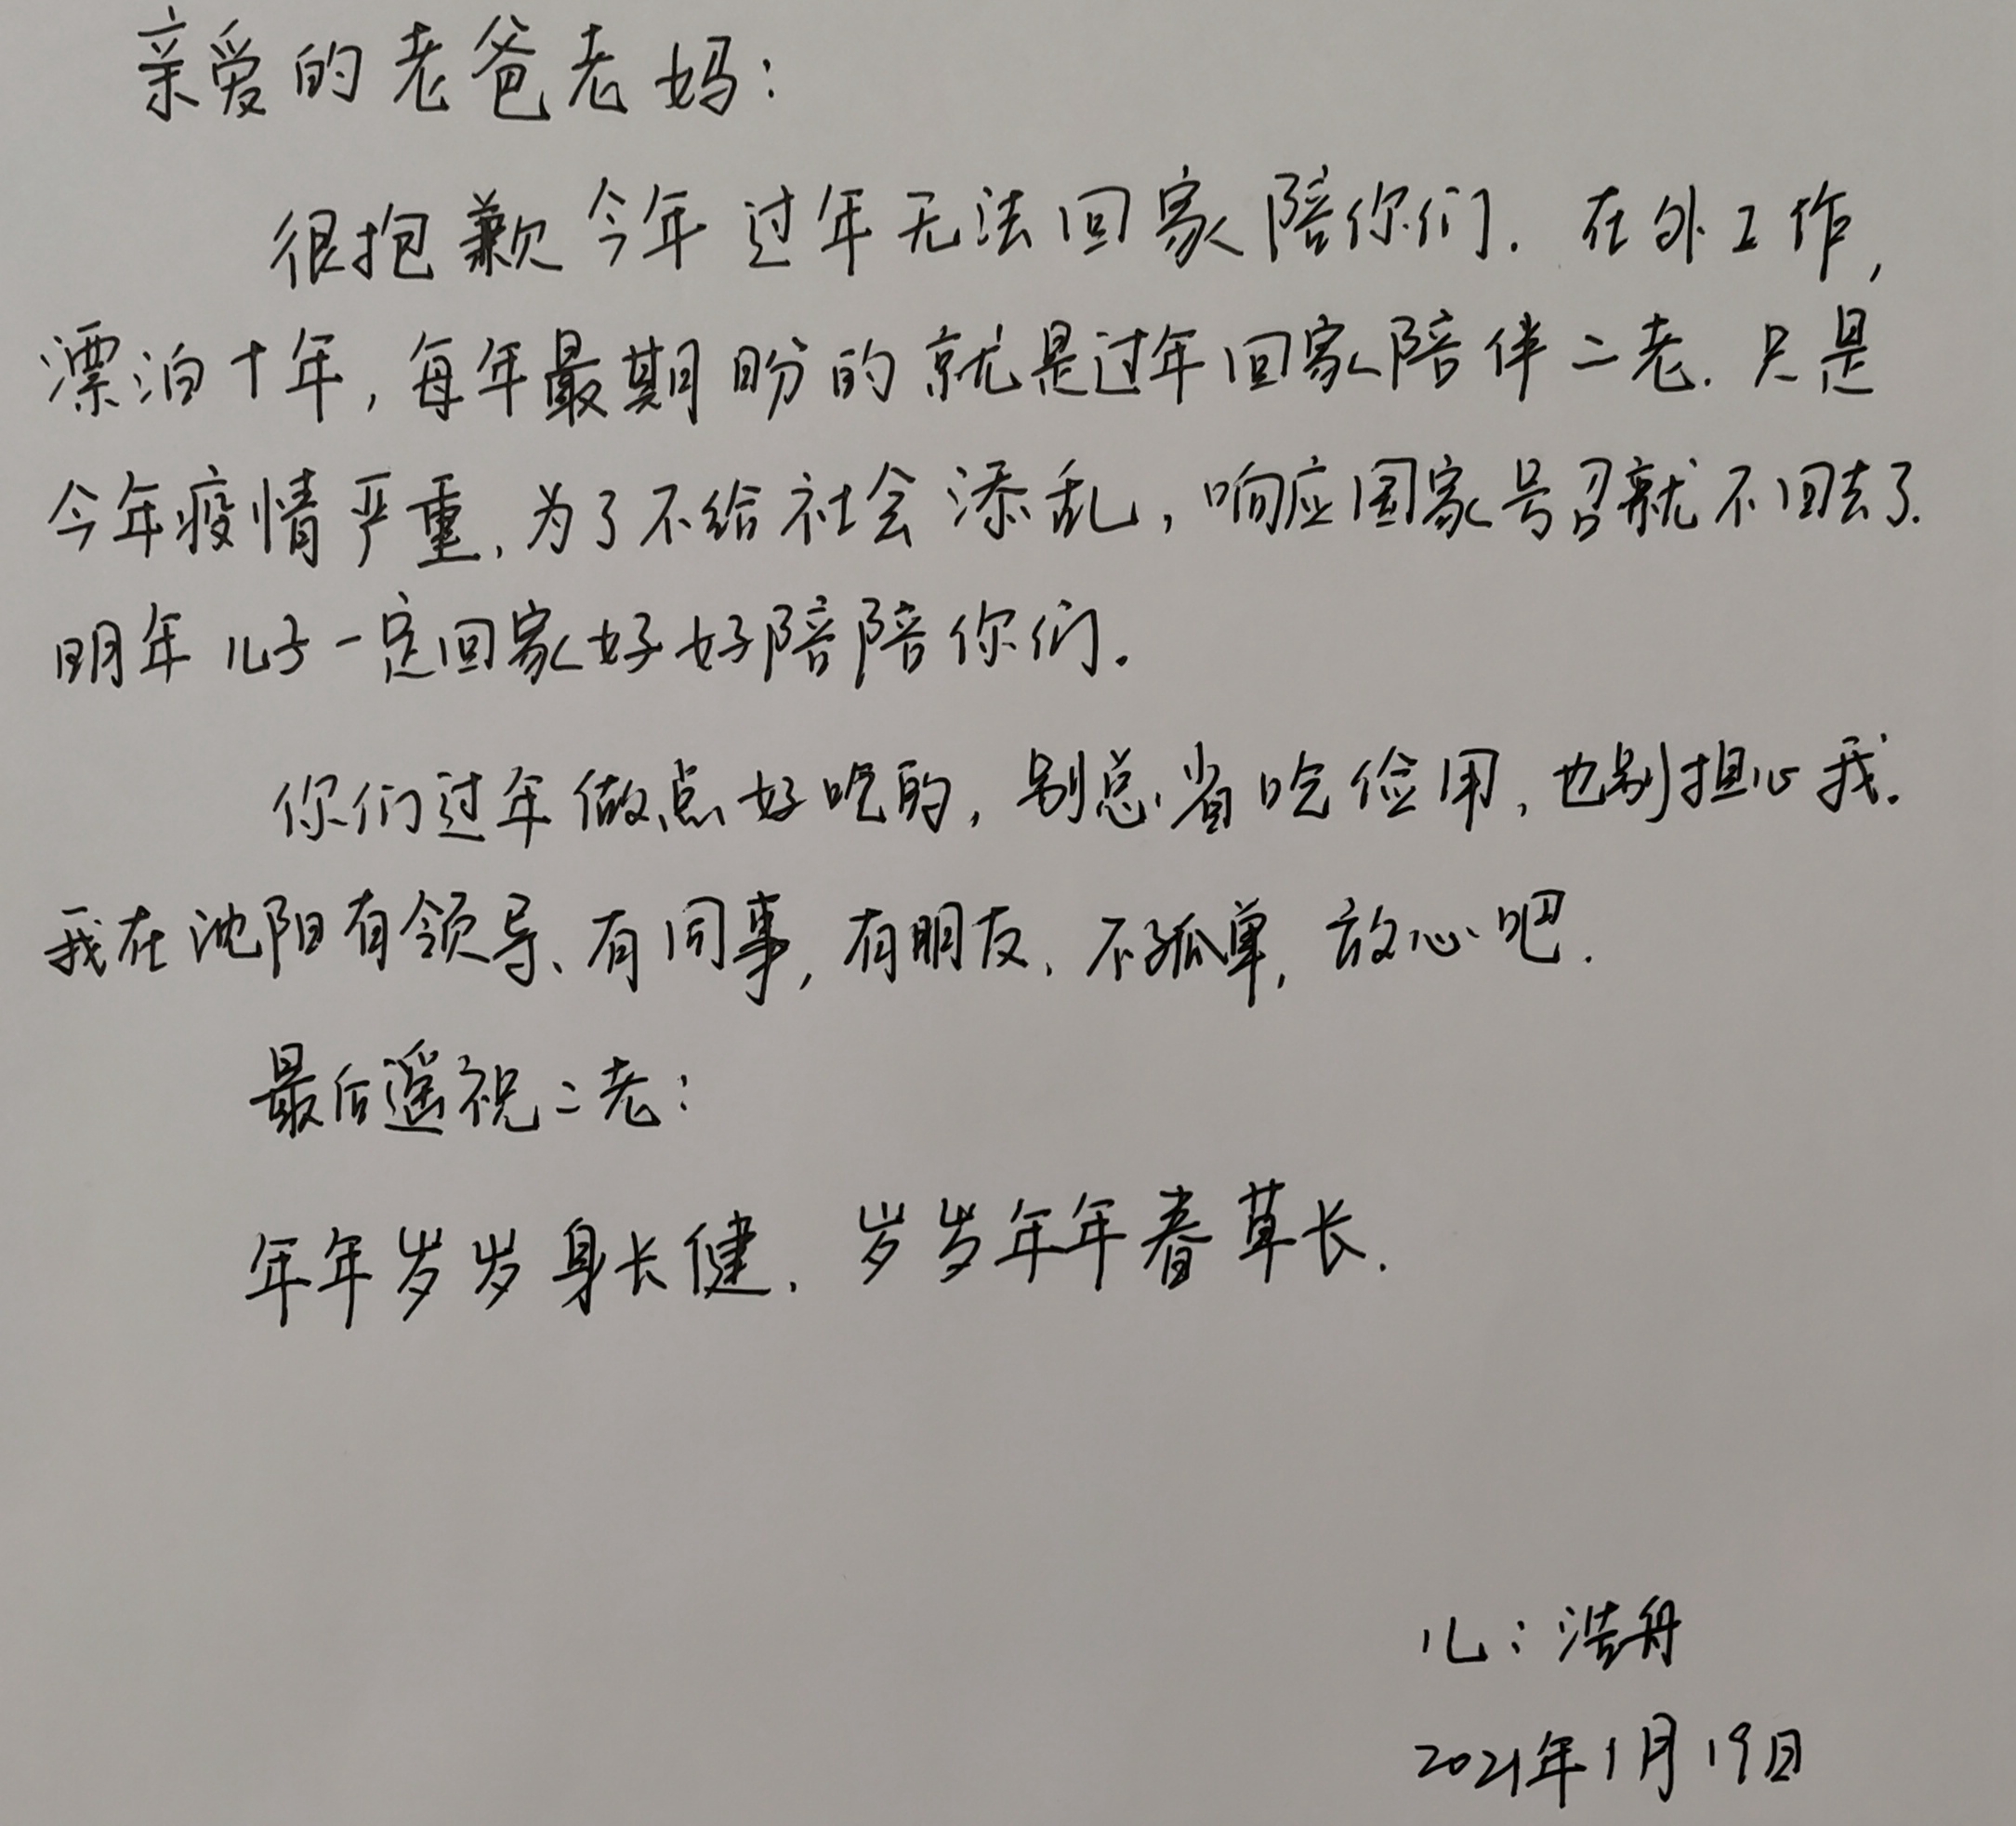 亲爱的老爸老妈：
很抱歉今年过年无法回家陪你们．在外工作，
漂泊十年，每年最期盼的就是过年回家陪伴二老．只是
今年疫情严重，为了不给社会添乱，响应国家号召就不回去了．
明年儿子一定回家好好陪陪你们。
你们过年做点好吃的，别总省吃俭用，也别担心我．
我在沈阳有领导、有同事，有朋友，不孤单，放心吧．
最后遥祝二老：
年年岁岁身长健．岁岁年年春草长．
儿：浩舟
2021年1月19日